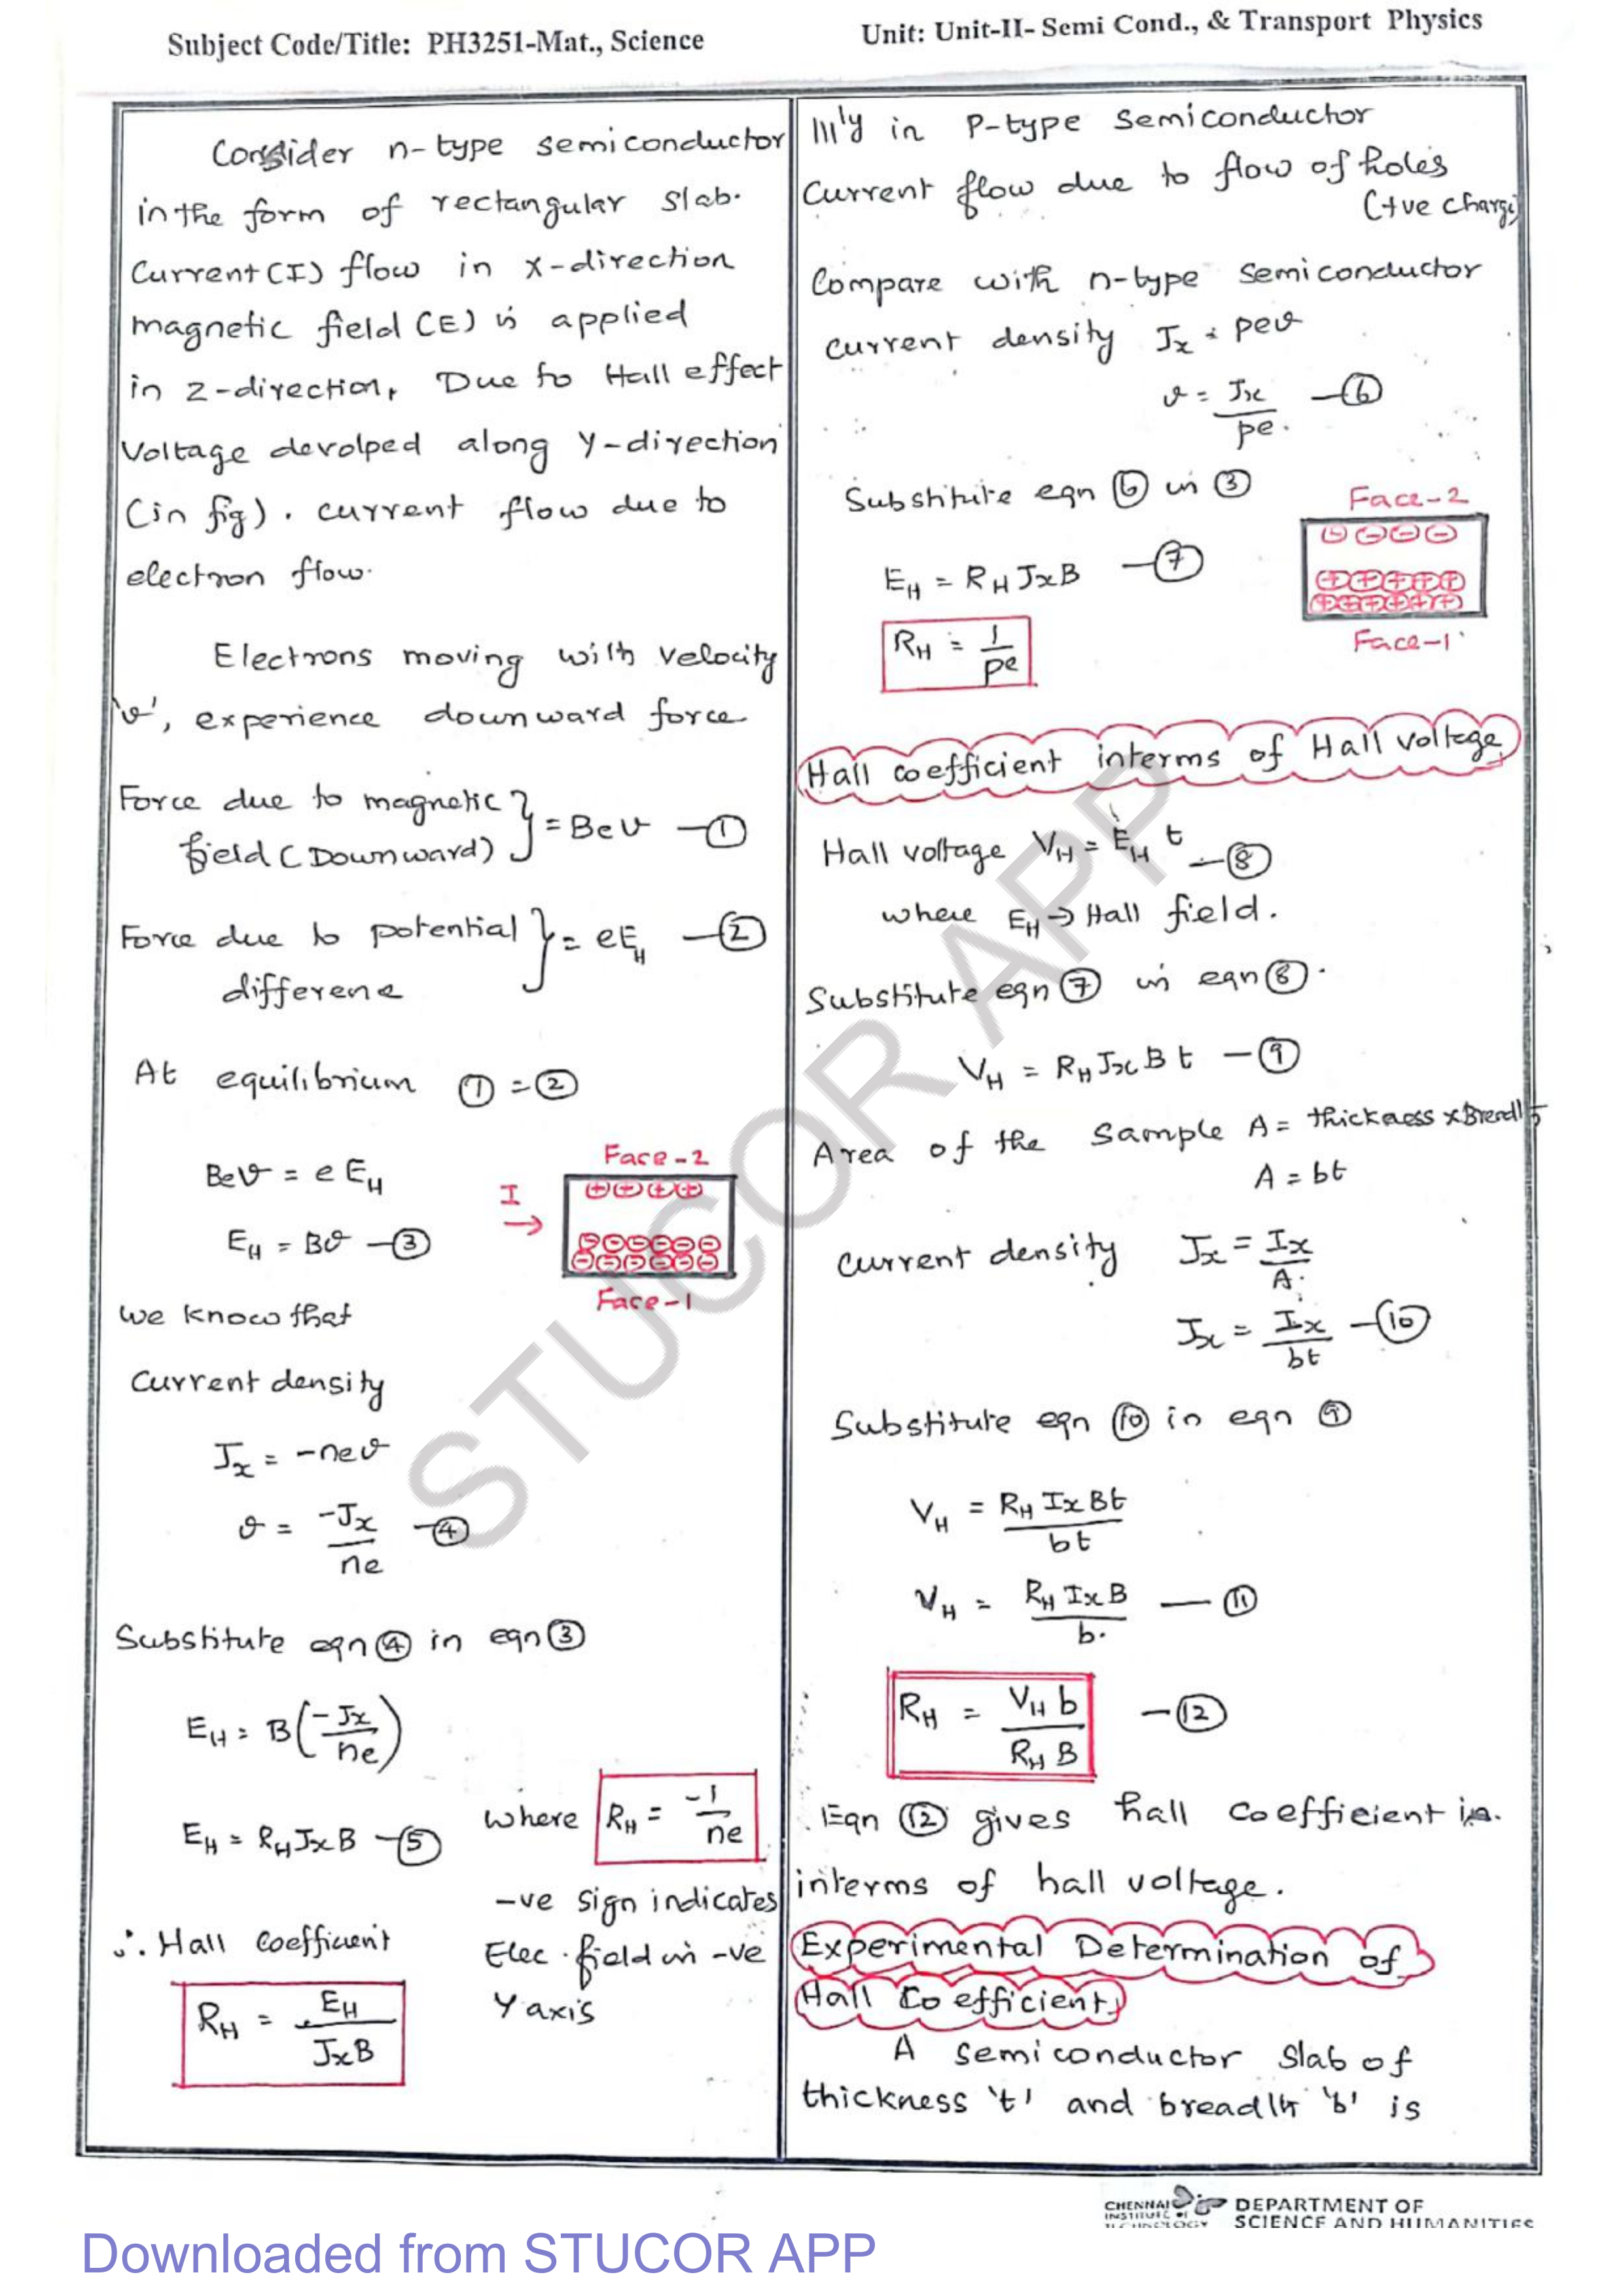 Subject Code/Title: PH3251-Mat., Science
Unit: Unit-II- Semi Cond., & Transport Physics
Consider n-type semiconductor
in the form of rectangular slab.
Current (I) flow in x-direction
magnetic field (E) is applied
in z-direction, Due to Hall effect
Voltage devolped along y-direction
(in fig). current flow due to
electron flow.
Electrons moving with velocity
'v', experience downward force
Force due to magnetic
field (Downward) } = Bev —①
Force due to potential
differene } = eE_H —②
At equilibrium ① = ②
Bev = e E_H
E_H = Bv —③
I →
Face-2
⊕⊕⊕⊕
⊖⊖⊖⊖⊖⊖
⊖⊖⊖⊖⊖⊖
Face-1
we know that
Current density
J_x = -nev
v = -J_x / ne —④
Substitute eqn ④ in eqn ③
E_H = B(-J_x / ne)
E_H = R_H J_x B —⑤
where R_H = -1 / ne
-ve sign indicates
Elec. field in -ve
Y axis
∴ Hall coefficient
R_H = E_H / J_x B
lll'y in P-type semiconductor
Current flow due to flow of holes
(+ve charge)
Compare with n-type semiconductor
current density J_x = pev
v = J_x / pe. —⑥
Substitute eqn ⑥ in ③
E_H = R_H J_x B —⑦
R_H = 1 / pe
Face-2
⊖⊖⊖⊖
⊕⊕⊕⊕⊕
⊕⊕⊕⊕⊕⊕
Face-1
Hall coefficient interms of Hall voltage
Hall voltage V_H = E_H t —⑧
where E_H → Hall field.
Substitute eqn ⑦ in eqn ⑧.
V_H = R_H J_x B t —⑨
Area of the sample A = thickness x Breadth
A = bt
Current density J_x = I_x / A.
J_x = I_x / bt —⑩
Substitute eqn ⑩ in eqn ⑨
V_H = R_H I_x B t / bt
V_H = R_H I_x B / b. —⑪
R_H = V_H b / R_H B —⑫
Eqn ⑫ gives hall coefficient in.
interms of hall voltage.
Experimental Determination of
Hall Coefficient
A semiconductor slab of
thickness 't' and breadth 'b' is
STUCOR APP
CHENNAI
INSTITUTE OF
TECHNOLOGY
DEPARTMENT OF
SCIENCE AND HUMANITIES
Downloaded from STUCOR APP